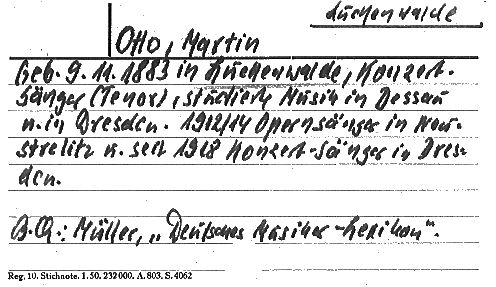 Luckenwalde
Otto, Martin
Geb. 9.11.1883 in Luckenwalde, Konzert-
sänger (Tenor), studierte Musik in Dessau
u. in Dresden. 1912/14 Opernsänger in Neu-
strelitz u. seit 1918 Konzert-Sänger in Dres-
den.
B.Qu.: Müller, „Deutsches Musiker-Lexikon".
Reg. 10. Stichnote. 1. 50. 232000. A. 803. S. 4062